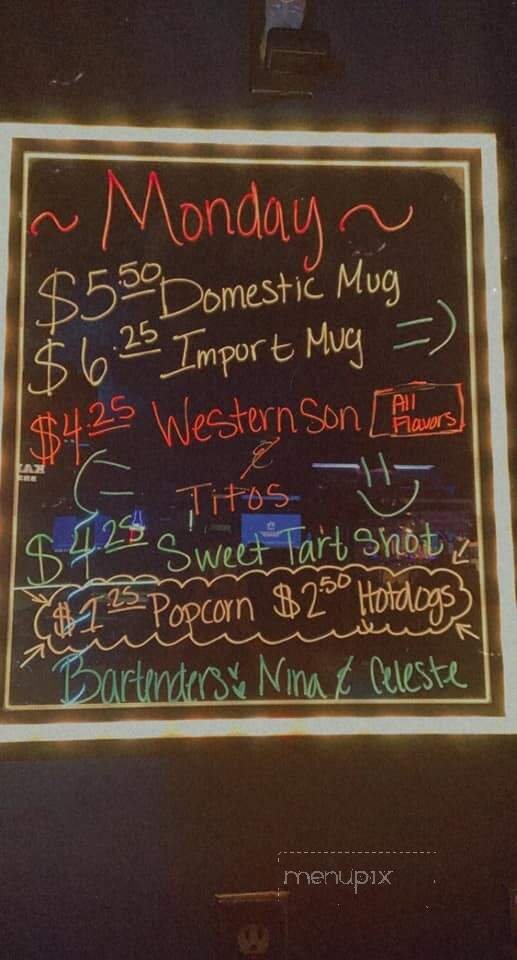 ~ Monday ~
$5.50 Domestic Mug
$6.25 Import Mug =)
$4.25 Western Son All Flavors
&
Titos
$4.25 Sweet Tart Shot
$1.25 Popcorn $2.50 Hotdogs
Bartenders: Nina & Celeste
menupix